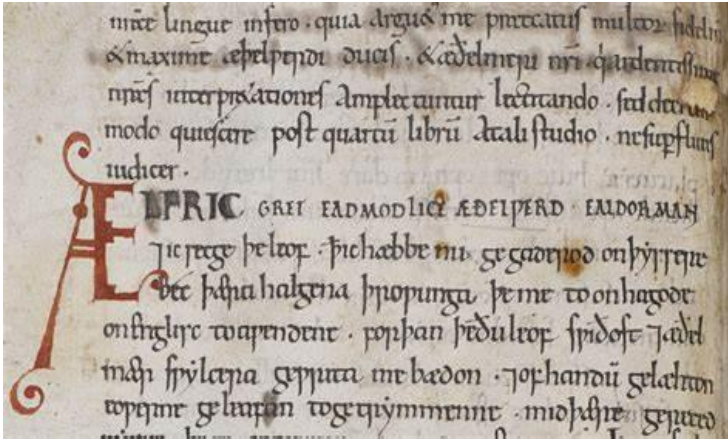 nr̄æ lingue infero · quia arguet me precatus multorū fideliū
& maximæ æþelƿerdi ducis · & æðelmeri nr̄i q̇ ardentissime
nr̄as interpretationes Amplectuntur lectitando · sed decerno
modo quiescere post quartū librū A tali studio · ne suꝑfluus
iudicer ·
ÆLFRIC GRET EADMODLICE ÆÐELǷERD · EALDORMAN
⁊ ic secge þe leof · ꝥ ic hæbbe nu gegaderod on þyssere
bec þæra halgena þroƿunga þe me to onhagode
on englisc to aƿendene · forþan þe ðu leof sƿiðost ⁊ æðel
mær sƿylcera geƿrita me bædon · ⁊ of handū gelæhton
eoƿerne geleafan to getrymmenne · mid þære gereced